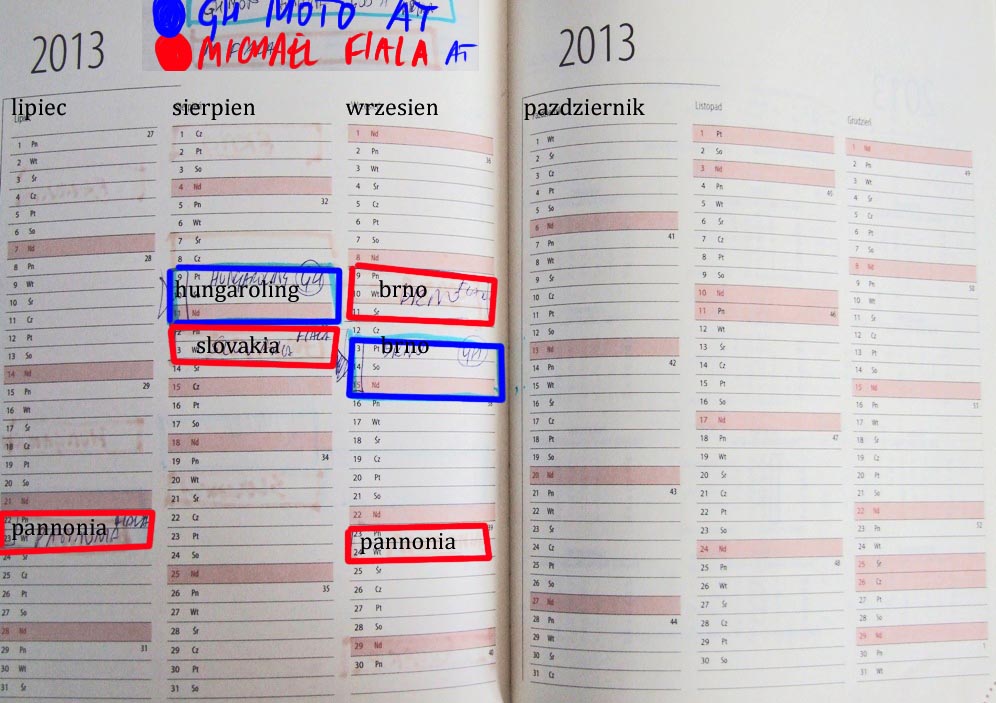 GH MOTO AT
MICHAEL FIALA AT
2013
2013
lipiec
Lipiec
1 Pn 27
2 Wt
3 Śr
4 Cz
5 Pt
6 So
7 Nd
8 Pn 28
9 Wt
10 Śr
11 Cz
12 Pt
13 So
14 Nd
15 Pn 29
16 Wt
17 Śr
18 Cz
19 Pt
20 So
21 Nd
pannonia FIALA
23 Wt PANNONIA
24 Śr
25 Cz
26 Pt
27 So
28 Nd
29 Pn 31
30 Wt
31 Śr
sierpien
1 Cz
2 Pt
3 So
4 Nd
5 Pn 32
6 Wt
7 Śr
8 Cz
9 Pt HUNGARORING GH
hungaroring
11 Nd
slovakia FIALA
14 Śr
15 Cz
16 Pt
17 So
18 Nd
19 Pn 34
20 Wt
21 Śr
22 Cz
23 Pt
24 So
25 Nd
26 Pn 35
27 Wt
28 Śr
29 Cz
30 Pt
31 So
wrzesien
1 Nd
2 Pn 36
3 Wt
4 Śr
5 Cz
6 Pt
7 So
8 Nd
9 Pn
10 Wt brno BRNO
11 Śr
12 Cz
brno
13 Pt BRNO GH
14 So
15 Nd
16 Pn 38
17 Wt
18 Śr
19 Cz
20 Pt
21 So
22 Nd
23 Pn 39
pannonia
24 Wt
25 Śr
26 Cz
27 Pt
28 So
29 Nd
30 Pn 40
pazdziernik
1 Wt
2 Śr
3 Cz
4 Pt
5 So
6 Nd
7 Pn 41
8 Wt
9 Śr
10 Cz
11 Pt
12 So
13 Nd
14 Pn 42
15 Wt
16 Śr
17 Cz
18 Pt
19 So
20 Nd
21 Pn 43
22 Wt
23 Śr
24 Cz
25 Pt
26 So
27 Nd
28 Pn 44
29 Wt
30 Śr
31 Cz
Listopad
1 Pt
2 So
3 Nd
4 Pn 45
5 Wt
6 Śr
7 Cz
8 Pt
9 So
10 Nd
11 Pn 46
12 Wt
13 Śr
14 Cz
15 Pt
16 So
17 Nd
18 Pn 47
19 Wt
20 Śr
21 Cz
22 Pt
23 So
24 Nd
25 Pn 48
26 Wt
27 Śr
28 Cz
29 Pt
30 So
Grudzień
1 Nd
2 Pn 49
3 Wt
4 Śr
5 Cz
6 Pt
7 So
8 Nd
9 Pn 50
10 Wt
11 Śr
12 Cz
13 Pt
14 So
15 Nd
16 Pn 51
17 Wt
18 Śr
19 Cz
20 Pt
21 So
22 Nd
23 Pn 52
24 Wt
25 Śr
26 Cz
27 Pt
28 So
29 Nd
30 Pn 1
31 Wt